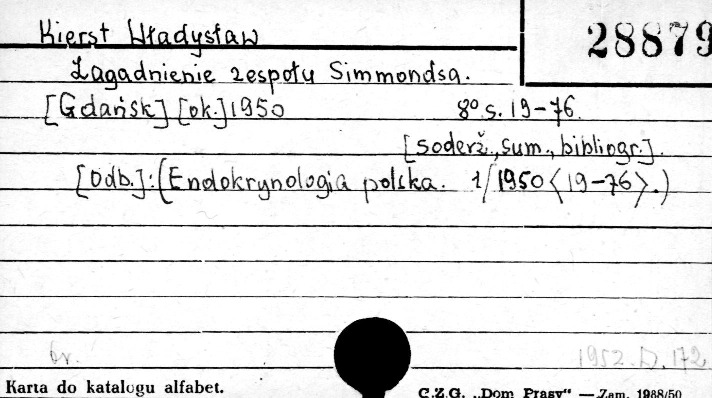 Kierst Władysław
28879
Zagadnienie zespołu Simmondsa.
[Gdańsk] [ok.] 1950 8° s. 19-76.
[soderž., sum., bibliogr.].
[Odb.]: (Endokrynologia polska. 1/1950 <19-76>.)
br. 1952.D.172
Karta do katalogu alfabet.
C.Z.G. „Dom Prasy“ — Zam. 1988/50